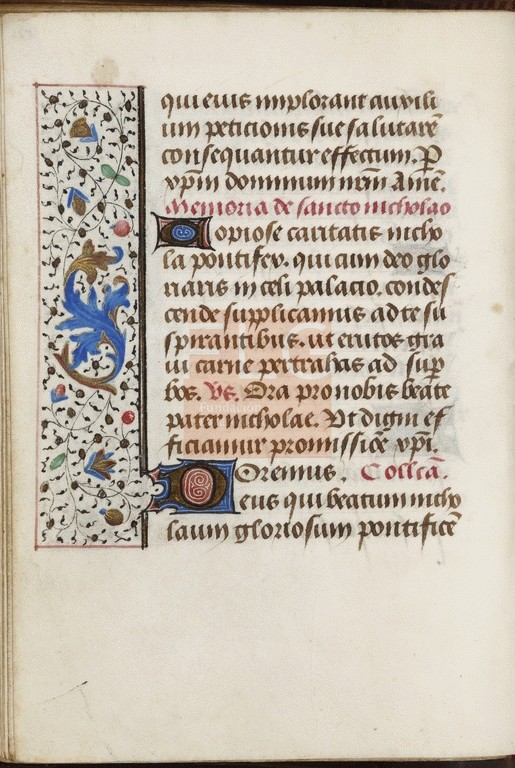 qui eius implorant auxili
um peticionis sue salutarē
consequantur effectum. P
xp̄m dominum nr̄m Amē.
Memoria de sancto nicholao
Copiose caritatis nicho
la pontifex. qui cum deo glo
riaris in celi palacio. condes
cende supplicamus ad te su
spirantibus. ut erutos gra
ui carne pertrahas ad sup̄
bos. Vs. Ora pro nobis beate
pater nicholae. Vt digni ef
ficiamur promissiōe xp̄i
Oremus. Collcā.
Deus qui beatum nicho
laum gloriosum pontificē
Fundación